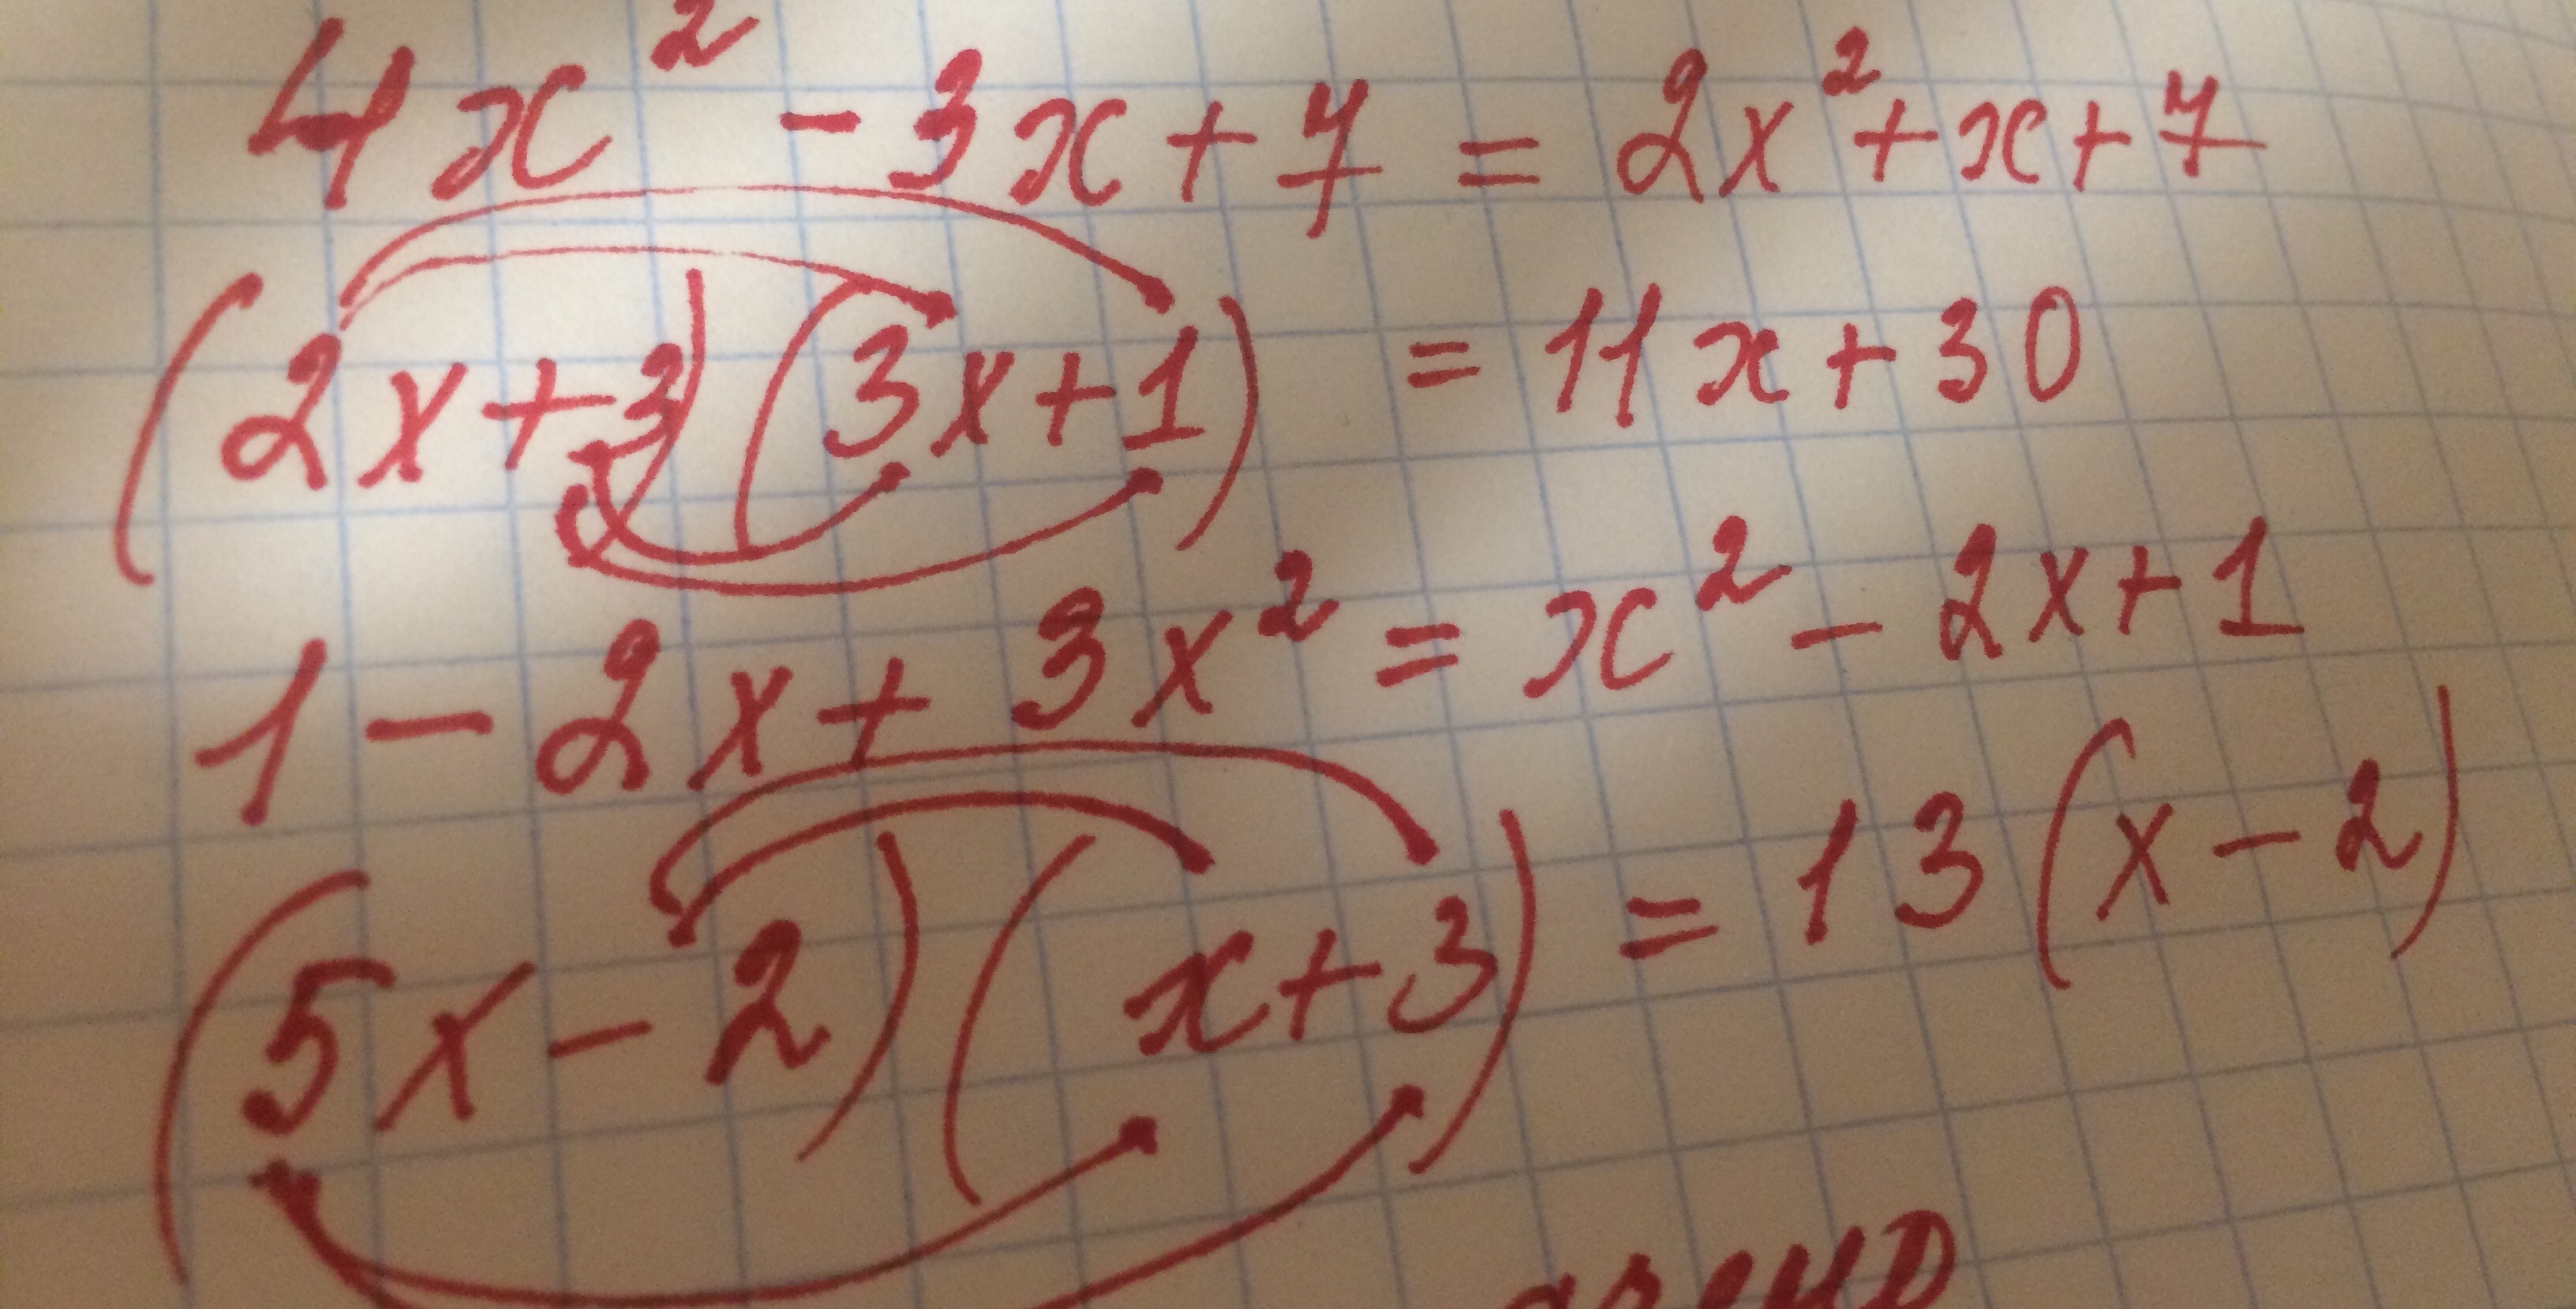 4x² - 3x + 7 = 2x² + x + 7
(2x + 3)(3x + 1) = 11x + 30
1 - 2x + 3x² = x² - 2x + 1
(5x - 2)(x + 3) = 13(x - 2)